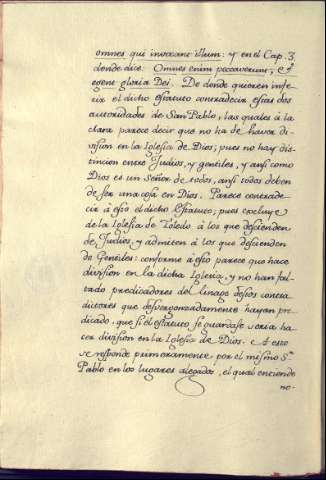 omnes qui invocant illum: y en el Cap. 3.
donde dice: Omnes enim peccaverunt, et
egent gloria Dei. De donde quieren infe-
rir el dicho estatuto contradecir estas dos
autoridades de San Pablo, las quales à la
clara parece decir que no ha de haver di-
vision en la Iglesia de Dios; pues no hay dis-
tincion entre Judios, y gentiles, y ansi como
Dios es un Señor de todos, ansi todos deben
de ser una cosa en Dios. Parece contrade-
cir à esto el dicho Estatuto; pues excluye
de la Iglesia de Toledo à los que descienden
de Judios, y admiten à los que descienden
de Gentiles: conforme à esto parece que hace
division en la dicha Iglesia, y no han fal-
tado predicadores del linage destos contra-
dictores que desvergonzadamente hayan pre-
dicado, que si el estatuto se guardase seria ha-
cer division en la Iglesia de Dios. A esto
se responde primeramente por el mismo Sn.
Pablo en los lugares alegados, el qual entiende
no-